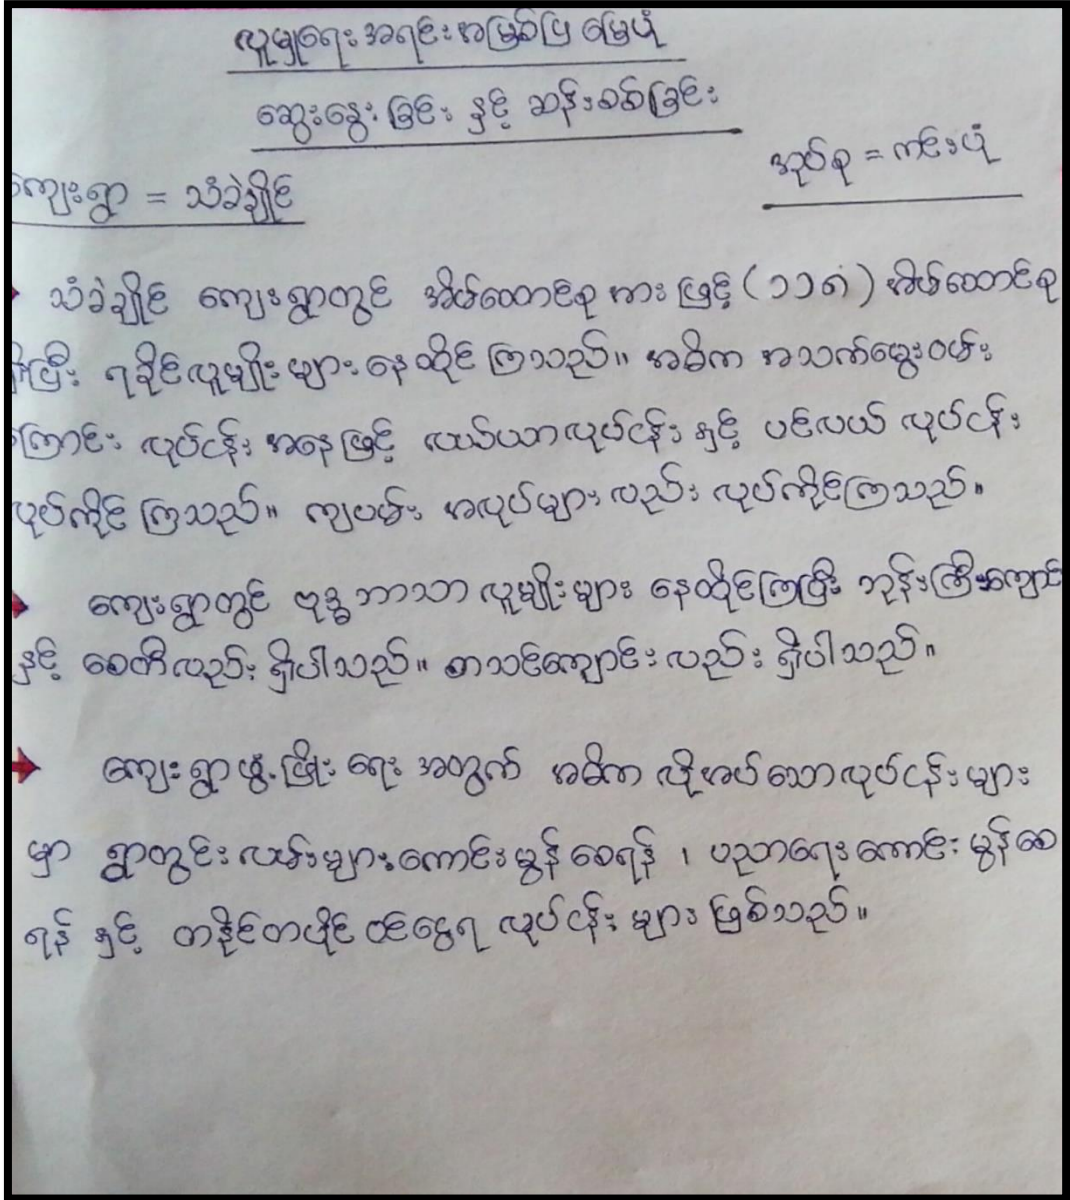 လူမှုရေးအရင်းအမြစ်ပြ မြေပုံ
ဆွေးနွေးခြင်း နှင့် ဆန်းစစ်ခြင်း
အုပ်စု = ကင်းပုံ
ကျေးရွာ = သံခဲချိုင်
သံခဲချိုင် ကျေးရွာတွင် အိမ်ထောင်စုအားဖြင့် (၁၁၈) အိမ်ထောင်စု
ရှိပြီး ရခိုင်လူမျိုးများ နေထိုင်ကြသည်။ အဓိက အသက်မွေးဝမ်း
ကြောင်း လုပ်ငန်း အနေဖြင့် လယ်ယာလုပ်ငန်း နှင့် ပင်လယ် လုပ်ငန်း
လုပ်ကိုင်ကြသည်။ ကျပမ်း အလုပ်များလည်း လုပ်ကိုင်ကြသည်။
ကျေးရွာတွင် ဗုဒ္ဓဘာသာ လူမျိုးများ နေထိုင်ကြပြီး ဘုန်းကြီးကျောင်း
နှင့် စေတီလည်း ရှိပါသည်။ စာသင်ကျောင်းလည်း ရှိပါသည်။
ကျေးရွာဖွံ့ဖြိုးရေး အတွက် အဓိက လိုအပ်သောလုပ်ငန်းများ
မှာ ရွာတွင်းလမ်းများကောင်းမွန်စေရန် ၊ ပညာရေးကောင်းမွန်စေ
ရန် နှင့် တနိုင်တပိုင် ဝင်ငွေရ လုပ်ငန်းများ ဖြစ်သည်။